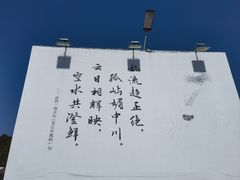 乱流趋正绝，
孤屿媚中川。
云日相辉映，
空水共澄鲜。